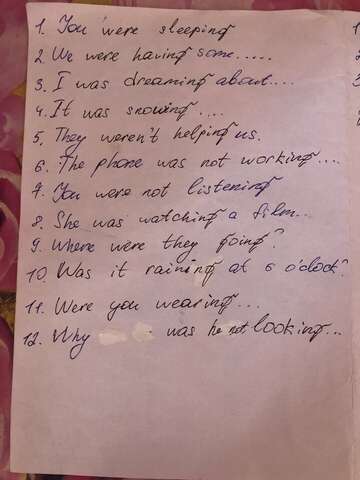 1. You were sleeping
2. We were having some.....
3. I was dreaming about....
4. It was snowing....
5. They weren't helping us.
6. The phone was not working....
7. You were not listening
8. She was watching a film...
9. Where were they going?
10. Was it raining at 6 o'clock?
11. Were you wearing...
12. Why was he not looking...